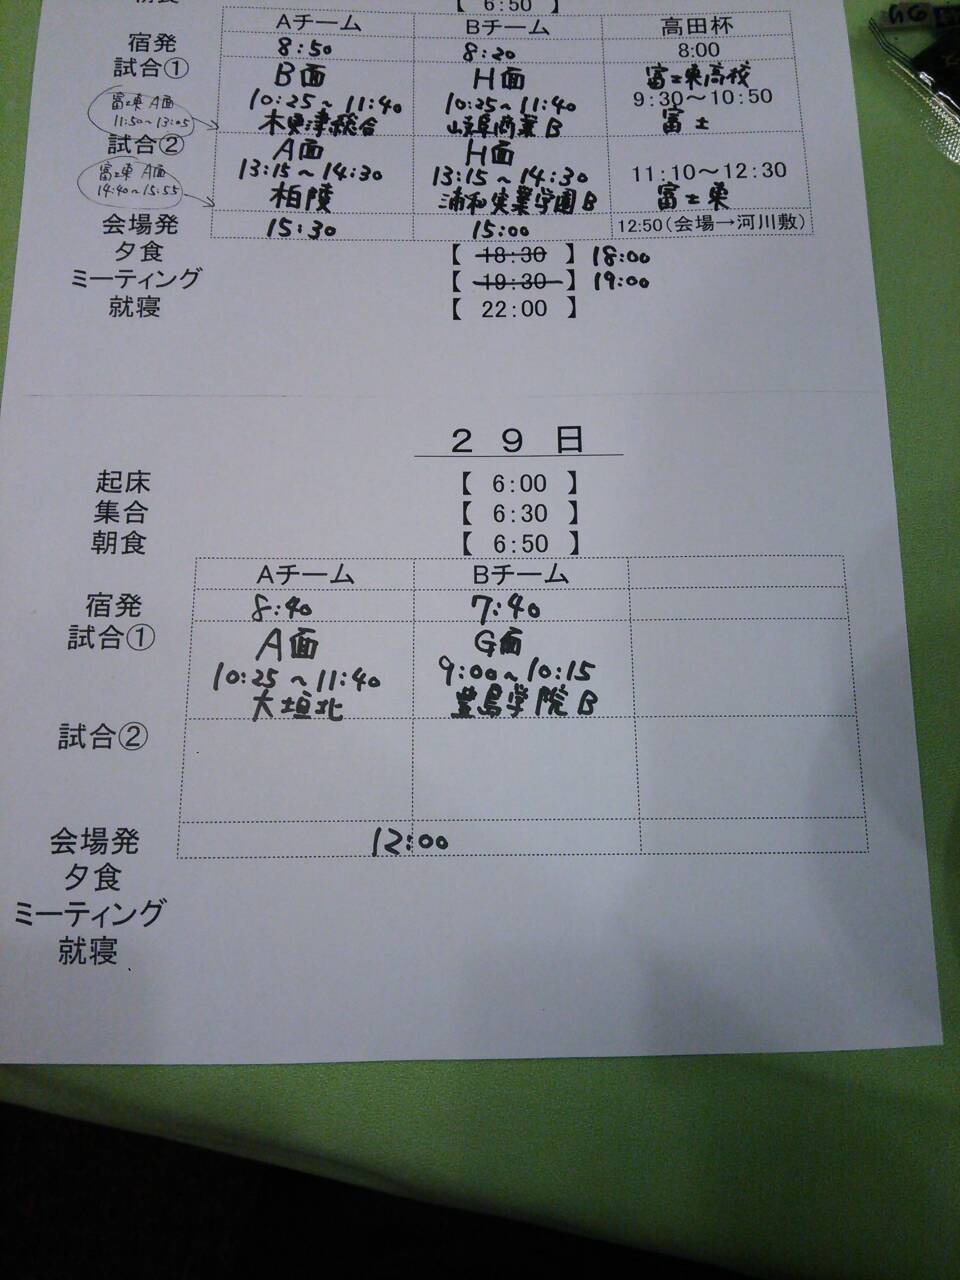 【 6:50 】
Aチーム Bチーム 高田杯
宿発 8:50 8:20 8:00
試合① B面 H面 富士東高校
10:25～11:40 10:25～11:40 9:30～10:50
木更津総合 岐阜商業B 富士
富士東 A面
11:50～13:05
試合② A面 H面
13:15～14:30 13:15～14:30 11:10～12:30
柏陵 浦和実業学園B 富士東
富士東 A面
14:40～15:55
会場発 15:30 15:00 12:50(会場→河川敷)
夕食 【 18:30 】 18:00
ミーティング 【 19:30 】 19:00
就寝 【 22:00 】
29日
起床 【 6:00 】
集合 【 6:30 】
朝食 【 6:50 】
Aチーム Bチーム
宿発 8:40 7:40
試合① A面 G面
10:25～11:40 9:00～10:15
大垣北 豊島学院B
試合②
会場発 12:00
夕食
ミーティング
就寝